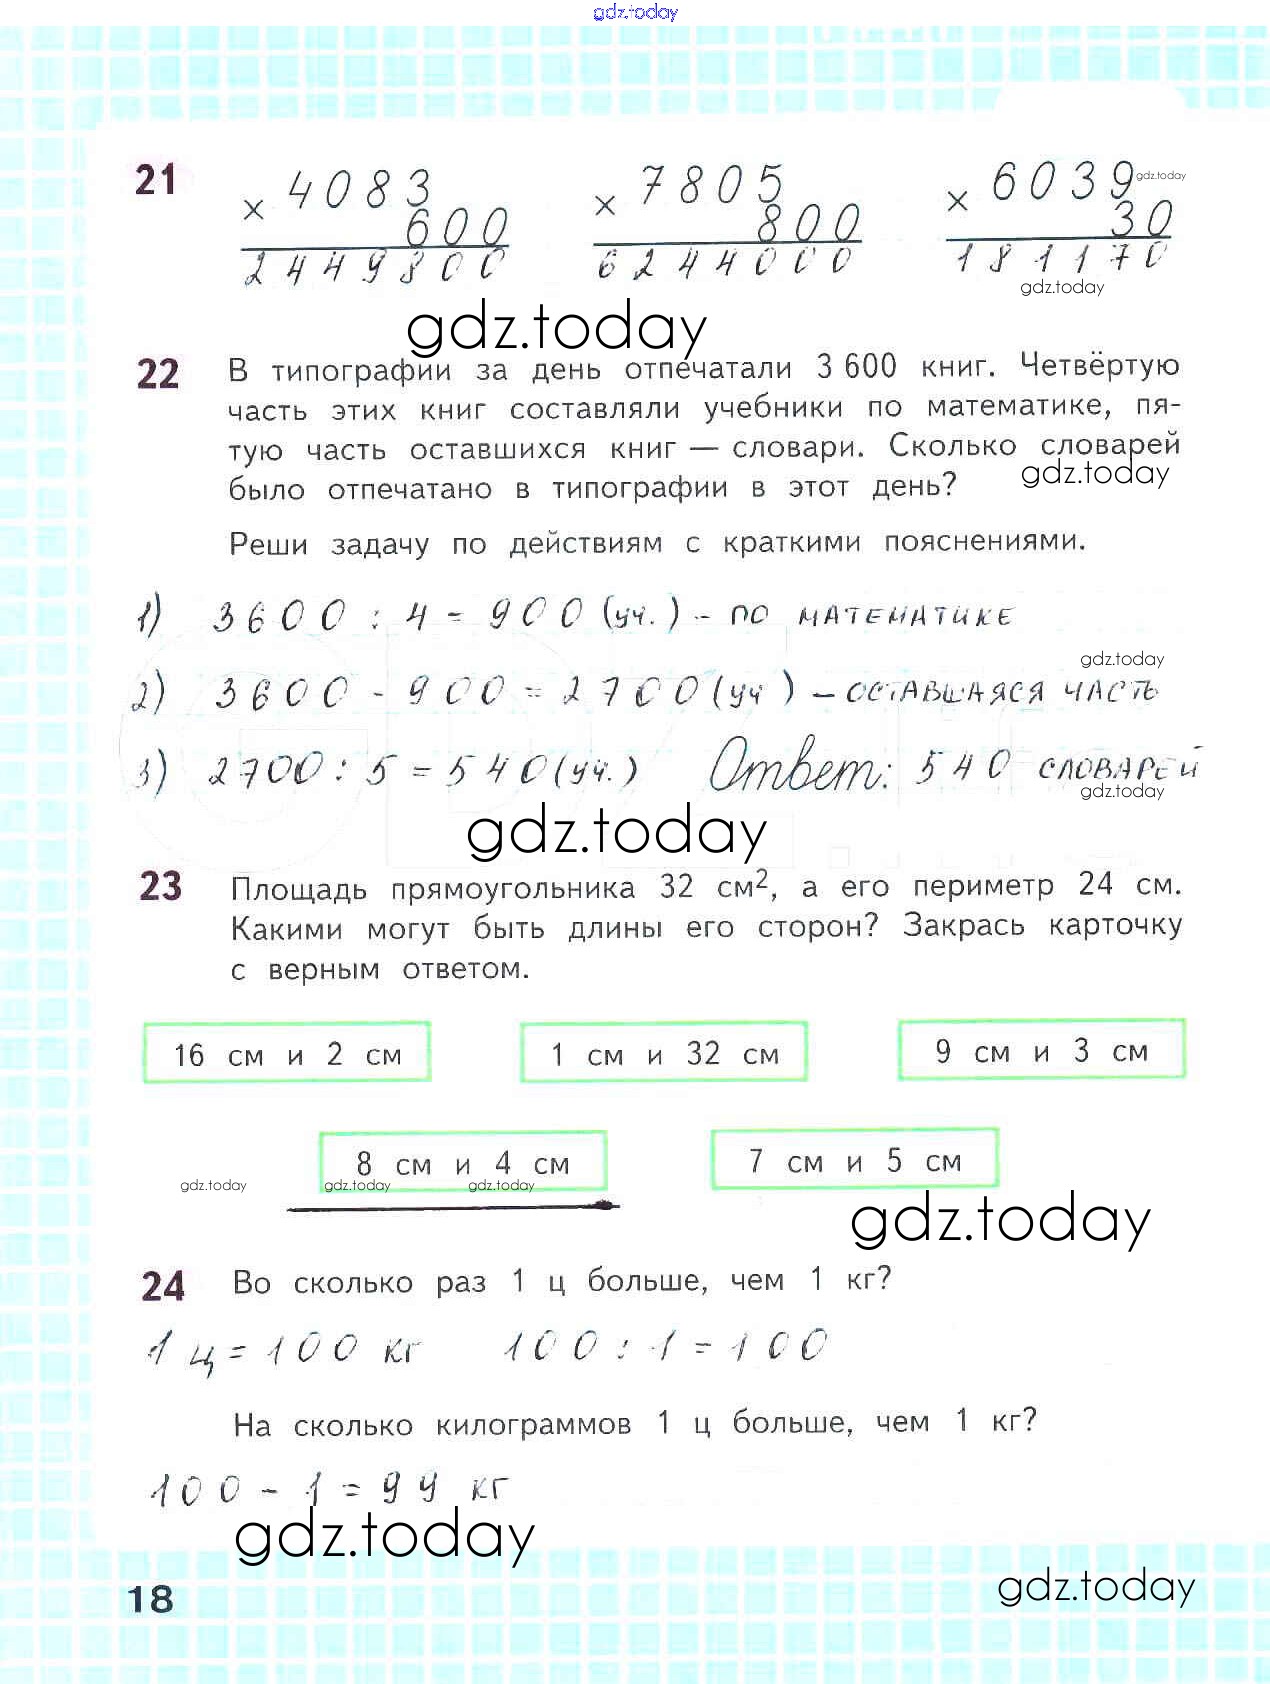 gdz.today
21
× 4083
600
2449800
× 7805
800
6244000
× 6039 gdz.today
30
181170
gdz.today
gdz.today
22 В типографии за день отпечатали 3 600 книг. Четвёртую
часть этих книг составляли учебники по математике, пя-
тую часть оставшихся книг — словари. Сколько словарей
gdz.today
было отпечатано в типографии в этот день?
Реши задачу по действиям с краткими пояснениями.
1) 3600 : 4 = 900 (уч.) - по математике
gdz.today
2) 3600 - 900 = 2700 (уч) - оставшаяся часть
3) 2700 : 5 = 540 (уч.) Ответ: 540 словарей
gdz.today
gdz.today
23 Площадь прямоугольника 32 см², а его периметр 24 см.
Какими могут быть длины его сторон? Закрась карточку
с верным ответом.
16 см и 2 см
1 см и 32 см
9 см и 3 см
8 см и 4 см
7 см и 5 см
gdz.today gdz.today gdz.today
gdz.today
24 Во сколько раз 1 ц больше, чем 1 кг?
1 ц = 100 кг 100 : 1 = 100
На сколько килограммов 1 ц больше, чем 1 кг?
100 - 1 = 99 кг
gdz.today
gdz.today
18